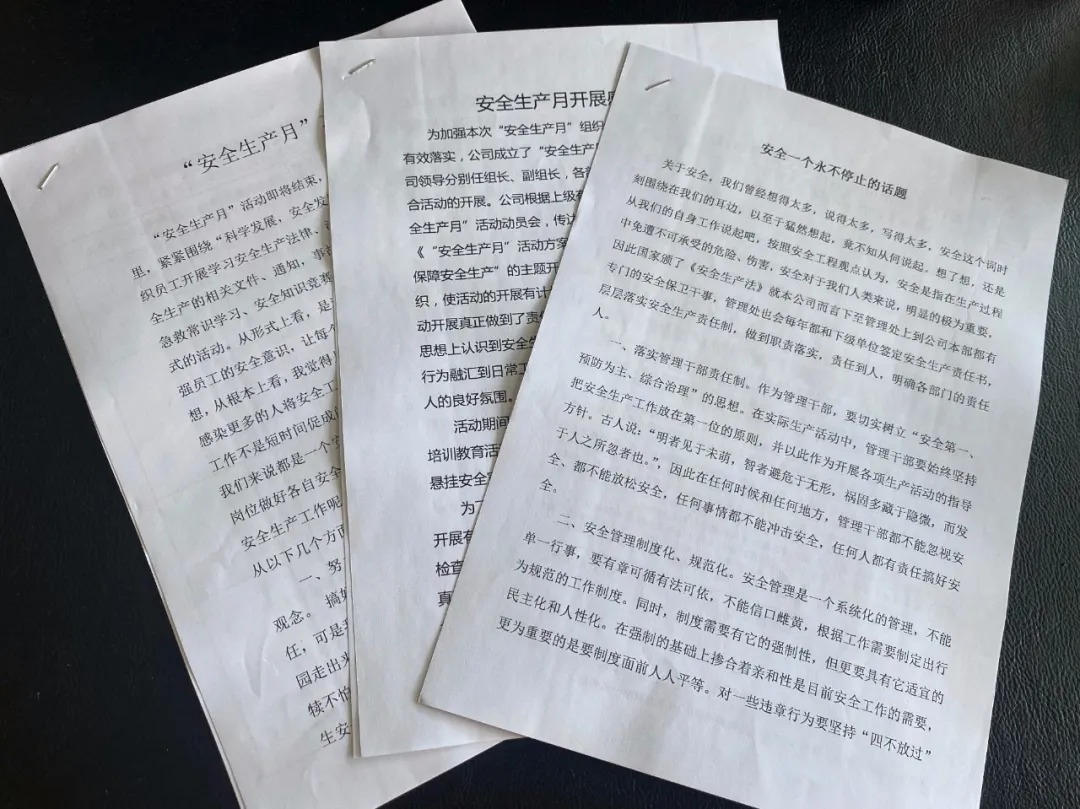 “安全生产月”
“安全生产月”活动即将结束，
里，紧紧围绕“科学发展、安全发
织员工开展学习安全生产法律、
全生产的相关文件、通知，事故
急救常识学习、安全知识竞赛
式的活动。从形式上看，是
强员工的安全意识，让每个
想，从根本上看，我觉得
感染更多的人将安全工
工作不是短时间促成
我们来说都是一个
岗位做好各自安全
安全生产工作呢
从以下几个方面
一、努
观念。搞好
任，可是
园走出来
犊不怕
生安
安全生产月开展
为加强本次“安全生产月”组织
有效落实，公司成立了“安全生产月
司领导分别任组长、副组长，各部
合活动的开展。公司根据上级
全生产月”活动动员会，传达
《“安全生产月”活动方案
保障安全生产”的主题开
织，使活动的开展有计
动开展真正做到了责任
思想上认识到安全生
行为融汇到日常工
人的良好氛围。
活动期间
培训教育活
悬挂安全
为了
开展有
检查
真
安全一个永不停止的话题
关于安全，我们曾经想得太多，说得太多，写得太多，安全这个词时
刻围绕在我们的耳边，以至于猛然想起，竟不知从何说起。想了想，还是
从我们的自身工作说起吧，按照安全工程观点认为，安全是指在生产过程
中免遭不可承受的危险、伤害，安全对于我们人类来说，明显的极为重要，
因此国家颁了《安全生产法》就本公司而言下至管理处上到公司本部都有
专门的安全保卫干事，管理处也会每年都和下级单位签定安全生产责任书，
层层落实安全生产责任制，做到职责落实，责任到人，明确各部门的责任
人。
一、落实管理干部责任制。作为管理干部，要切实树立“安全第一、
预防为主、综合治理”的思想。在实际生产活动中，管理干部要始终坚持
把安全生产工作放在第一位的原则，并以此作为开展各项生产活动的指导
方针。古人说：“明者见于未萌，智者避危于无形，祸固多藏于隐微，而发
于人之所忽者也。”，因此在任何时候和任何地方，管理干部都不能忽视安
全、都不能放松安全，任何事情都不能冲击安全，任何人都有责任搞好安
全。
二、安全管理制度化、规范化。安全管理是一个系统化的管理，不能
单一行事，要有章可循有法可依，不能信口雌黄，根据工作需要制定出行
为规范的工作制度。同时，制度需要有它的强制性，但更要具有它适宜的
民主化和人性化。在强制的基础上掺合着亲和性是目前安全工作的需要，
更为重要的是要制度面前人人平等。对一些违章行为要坚持“四不放过”